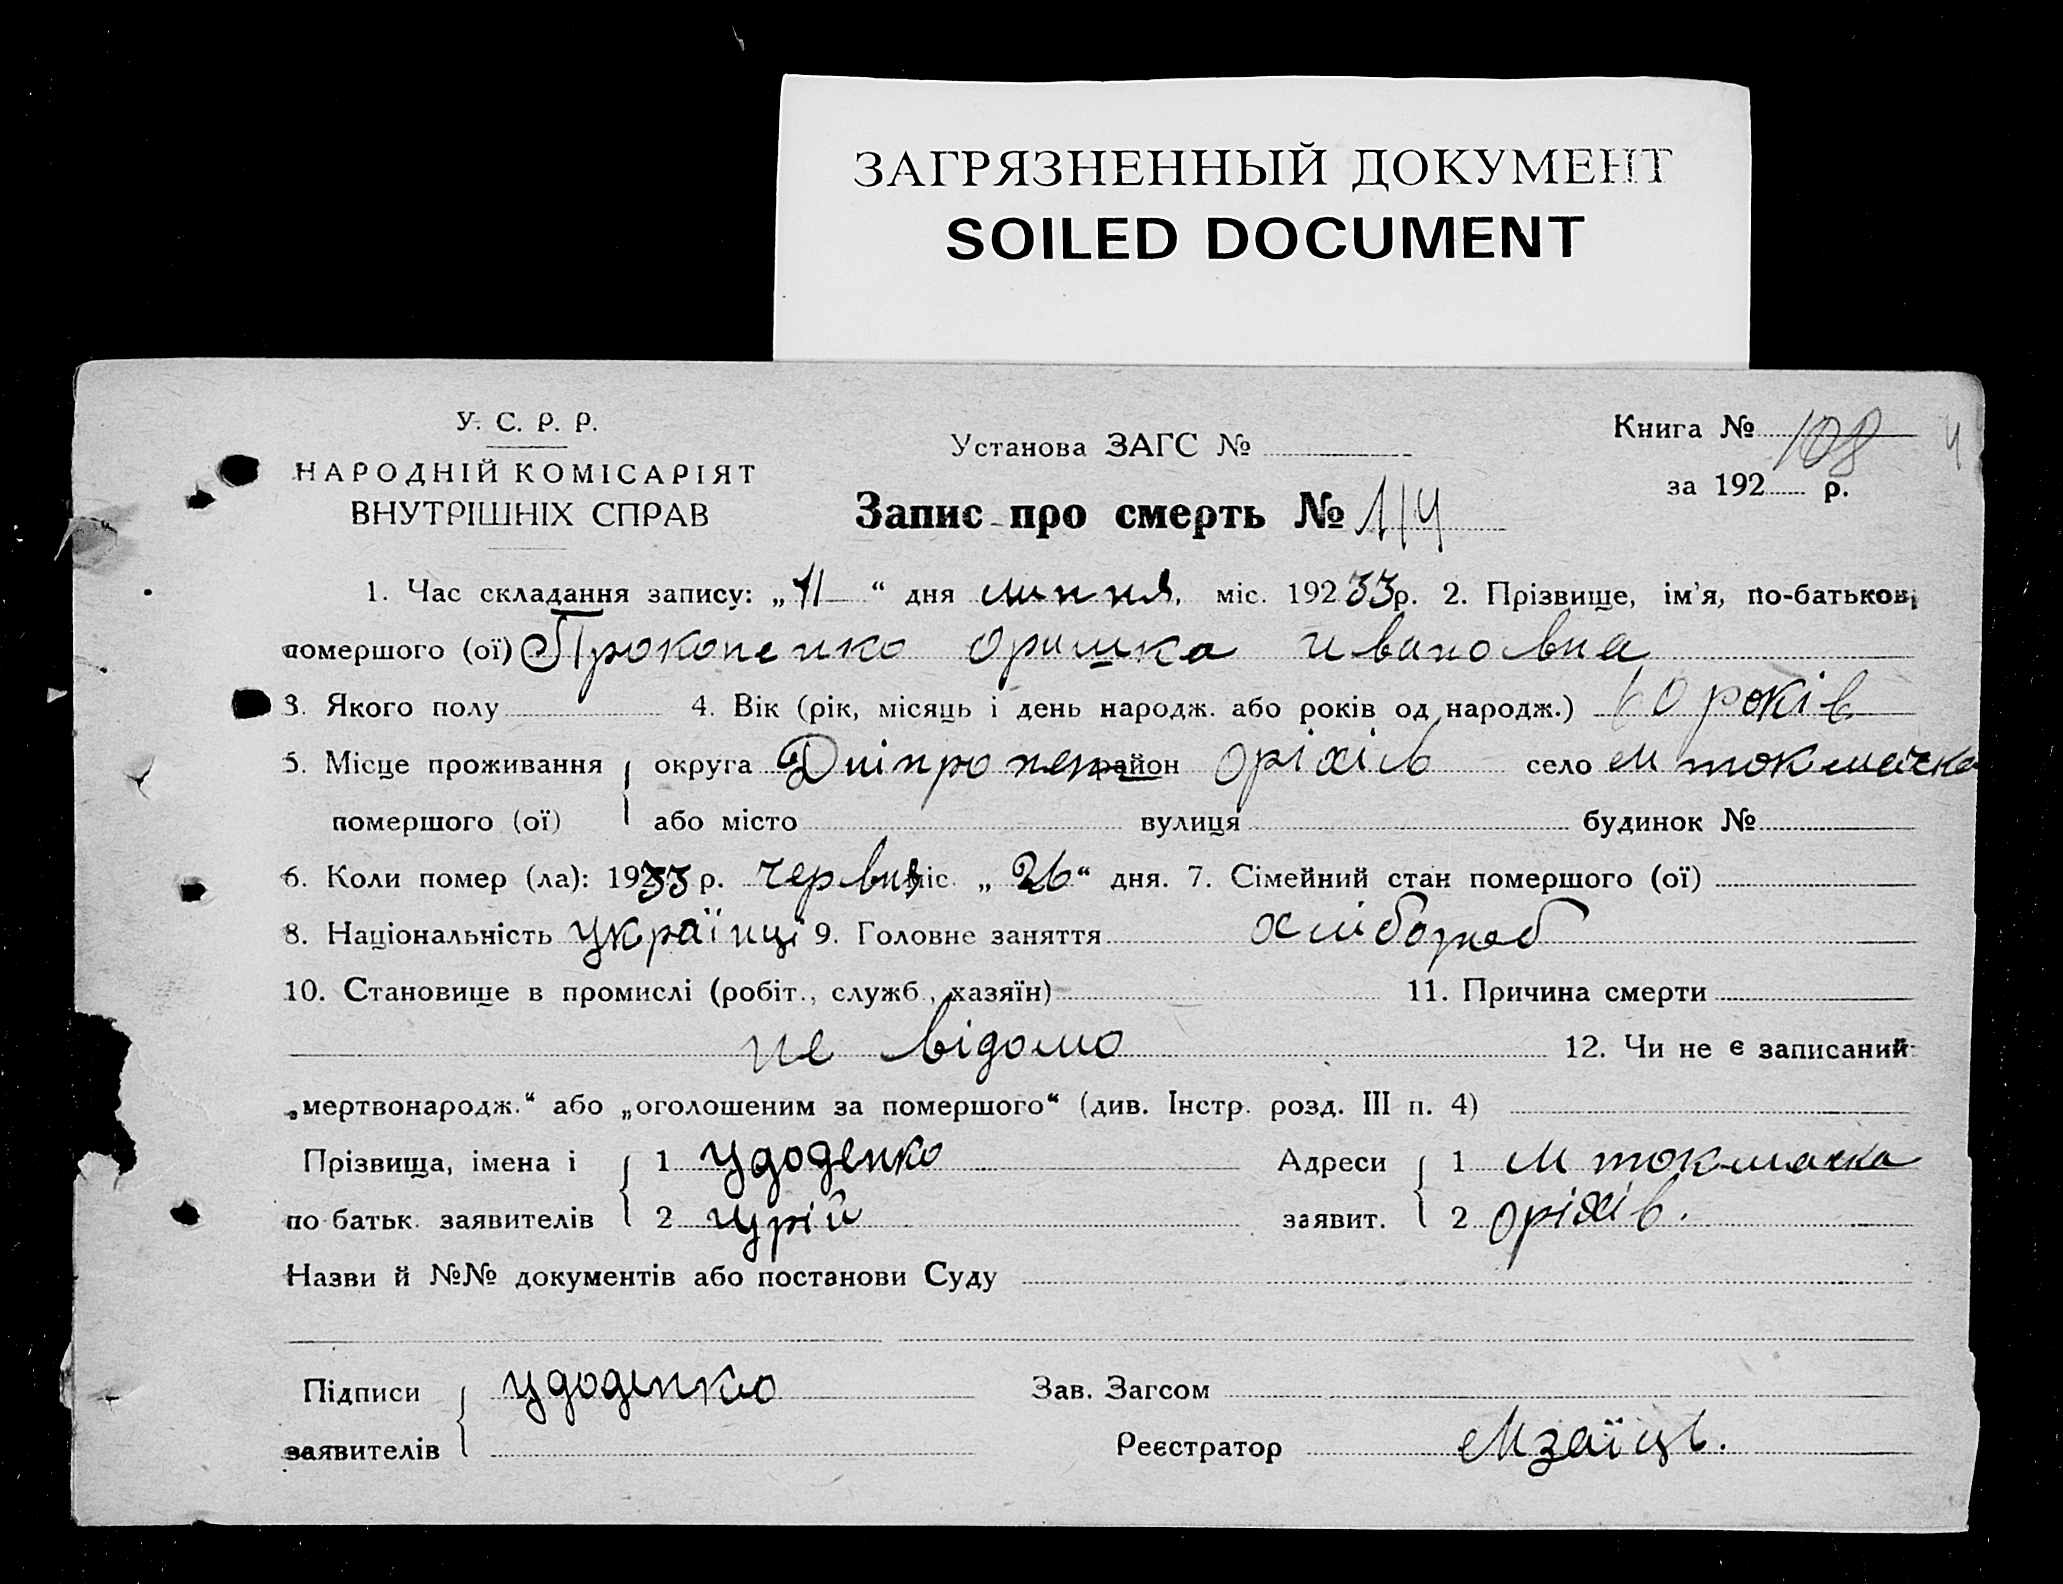 ЗАГРЯЗНЕННЫЙ ДОКУМЕНТ
SOILED DOCUMENT
У. С. Р. Р.
НАРОДНІЙ КОМІСАРІЯТ
ВНУТРІШНІХ СПРАВ
Установа ЗАГС №
Запис про смерть № 114
Книга № 108
за 192 р.
1. Час складання запису: „11“ дня липня, міс. 19233р. 2. Прізвище, ім'я, по-батькові
помершого (ої) Прокопенко Оришка ивановна
3. Якого полу 4. Вік (рік, місяць і день народж. або років од народж.) 60 років
5. Місце проживання округа Дніпропет район Оріхів село М токмачка
помершого (ої) або місто вулиця будинок №
6. Коли помер (ла): 1933 р. червня міс. „26“ дня. 7. Сімейний стан помершого (ої)
8. Національність українці 9. Головне заняття хлібороб
10. Становище в промислі (робіт., служб., хазяїн) 11. Причина смерти
не відомо 12. Чи не є записаний
„мертвонародж.“ або „оголошеним за помершого“ (див. Інстр. розд. III п. 4)
Прізвища, імена і 1 Удоденко Адреси 1 М токмачка
по батьк. заявителів 2 Юрій заявит. 2 Оріхів.
Назви й №№ документів або постанови Суду
Підписи Удоденко Зав. Загсом
заявителів Реєстратор Мзаїць.